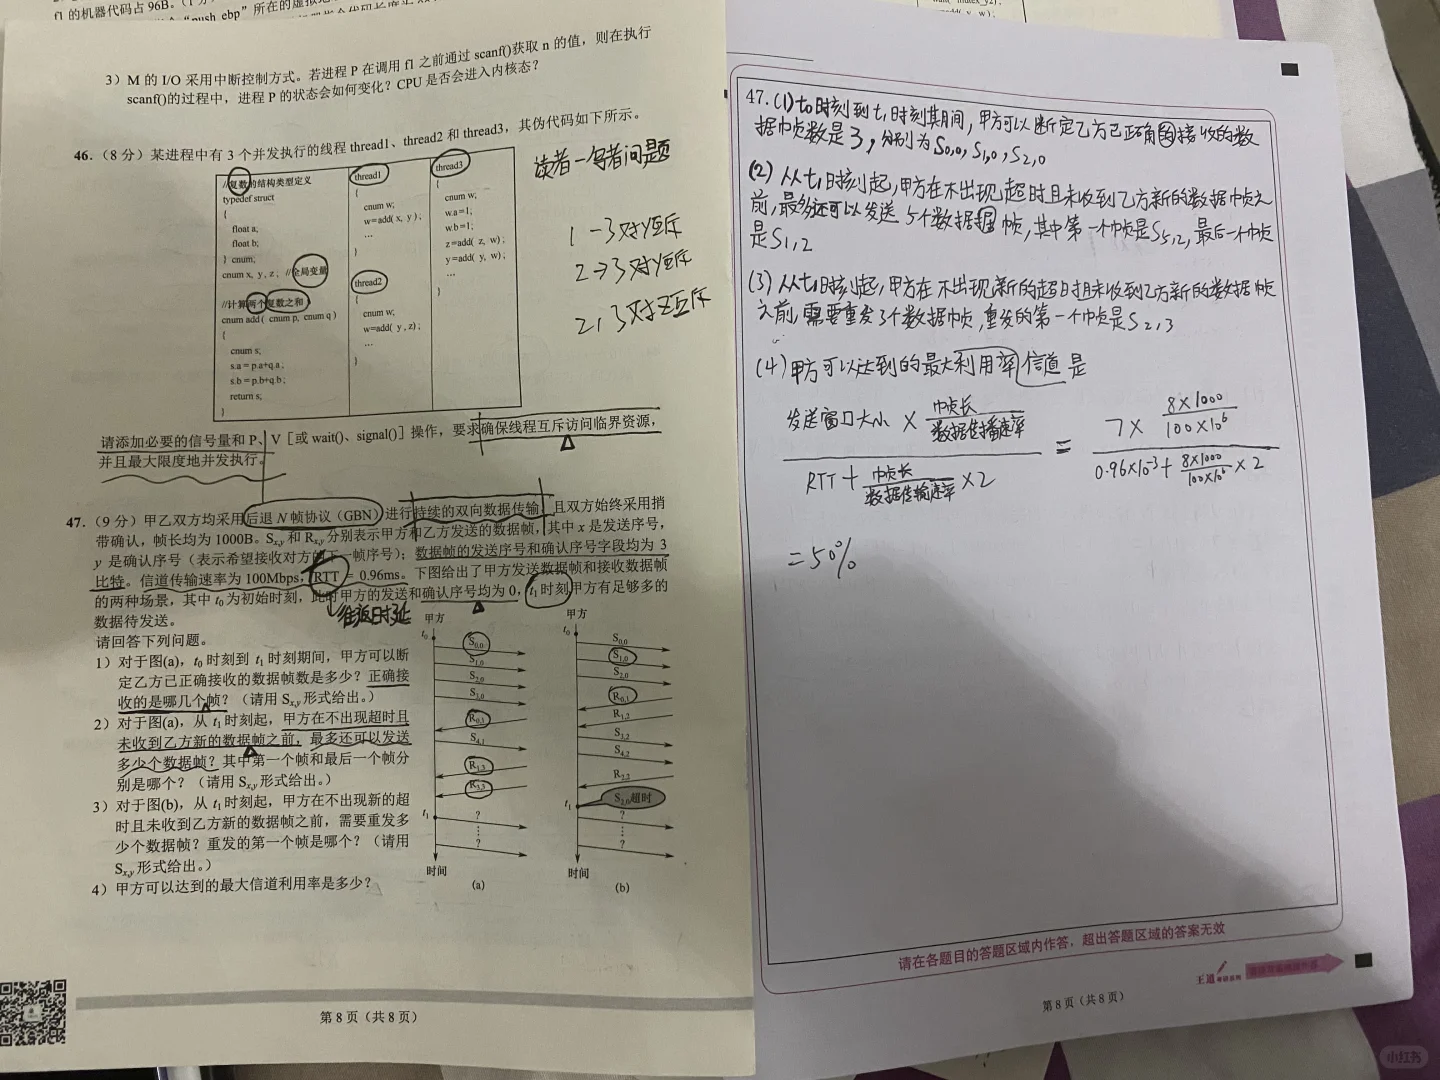 f1 的机器代码占 96B。(1
3）M 的 I/O 采用中断控制方式。若进程 P 在调用 f1 之前通过 scanf()获取 n 的值，则在执行
scanf()的过程中，进程 P 的状态会如何变化？CPU 是否会进入内核态？
46.（8 分）某进程中有 3 个并发执行的线程 thread1、thread2 和 thread3，其伪代码如下所示。
//复数的结构类型定义
typedef struct
{
float a;
float b;
} cnum;
cnum x, y, z; //全局变量
//计算两个复数之和
cnum add( cnum p, cnum q )
{
cnum s;
s.a = p.a+q.a;
s.b = p.b+q.b;
return s;
}
thread1
{
cnum w;
w=add( x, y );
…
}
thread2
{
cnum w;
w=add( y, z);
…
}
thread3
{
cnum w;
w.a=1;
w.b=1;
z=add( z, w);
y=add( y, w);
…
}
读者—写者问题
1—3对y互斥
2→3对y互斥
2,3对z互斥
请添加必要的信号量和 P、V［或 wait()、signal()］操作，要求确保线程互斥访问临界资源，
并且最大限度地并发执行。
47.（9 分）甲乙双方均采用后退 N 帧协议（GBN）进行持续的双向数据传输，且双方始终采用捎
带确认，帧长均为 1000B。Sx,y 和 Rx,y 分别表示甲方和乙方发送的数据帧，其中 x 是发送序号，
y 是确认序号（表示希望接收对方的下一帧序号）；数据帧的发送序号和确认序号字段均为 3
比特。信道传输速率为 100Mbps，RTT = 0.96ms。下图给出了甲方发送数据帧和接收数据帧
的两种场景，其中 t0 为初始时刻，此时甲方的发送和确认序号均为 0，t1 时刻甲方有足够多的
数据待发送。
往返时延
请回答下列问题。
1）对于图(a)，t0 时刻到 t1 时刻期间，甲方可以断
定乙方已正确接收的数据帧数是多少？正确接
收的是哪几个帧？（请用 Sx,y 形式给出。）
2）对于图(a)，从 t1 时刻起，甲方在不出现超时且
未收到乙方新的数据帧之前，最多还可以发送
多少个数据帧？其中第一个帧和最后一个帧分
别是哪个？（请用 Sx,y 形式给出。）
3）对于图(b)，从 t1 时刻起，甲方在不出现新的超
时且未收到乙方新的数据帧之前，需要重发多
少个数据帧？重发的第一个帧是哪个？（请用
Sx,y 形式给出。）
4）甲方可以达到的最大信道利用率是多少？
甲方
t0
S0,0
S1,0
S2,0
S3,0
R0,1
S4,1
R1,3
R3,3
t1
?
⋮
?
时间
(a)
甲方
t0
S0,0
S1,0
S2,0
R0,1
R1,2
S3,2
S4,2
R3,2
S2,0超时
t1
?
⋮
?
时间
(b)
第 8 页（共 8 页）
47.(1)t0时刻到t1时刻期间，甲方可以断定乙方已正确的接收的数
据帧数是3，分别为S0,0，S1,0，S2,0
(2)从t1时刻起，甲方在不出现超时且未收到乙方新的数据帧之
前，最多还可以发送5个数据帧，其中第一个帧是S5,2，最后一个帧
是S1,2
(3)从t1时刻起，甲方在不出现新的超时且未收到乙方新的数据帧
之前，需要重发3个数据帧，重发的第一个帧是S2,3
(4)甲方可以达到的最大利用率信道是
发送窗口大小 × 帧长/数据传播速率
RTT + 帧长/数据传输速率 × 2
= 7 × 8×1000/100×10^6
0.96×10^-3 + 8×1000/100×10^6 × 2
=50%
请在各题目的答题区域内作答，超出答题区域的答案无效
王道
第 8 页（共 8 页）
小红书